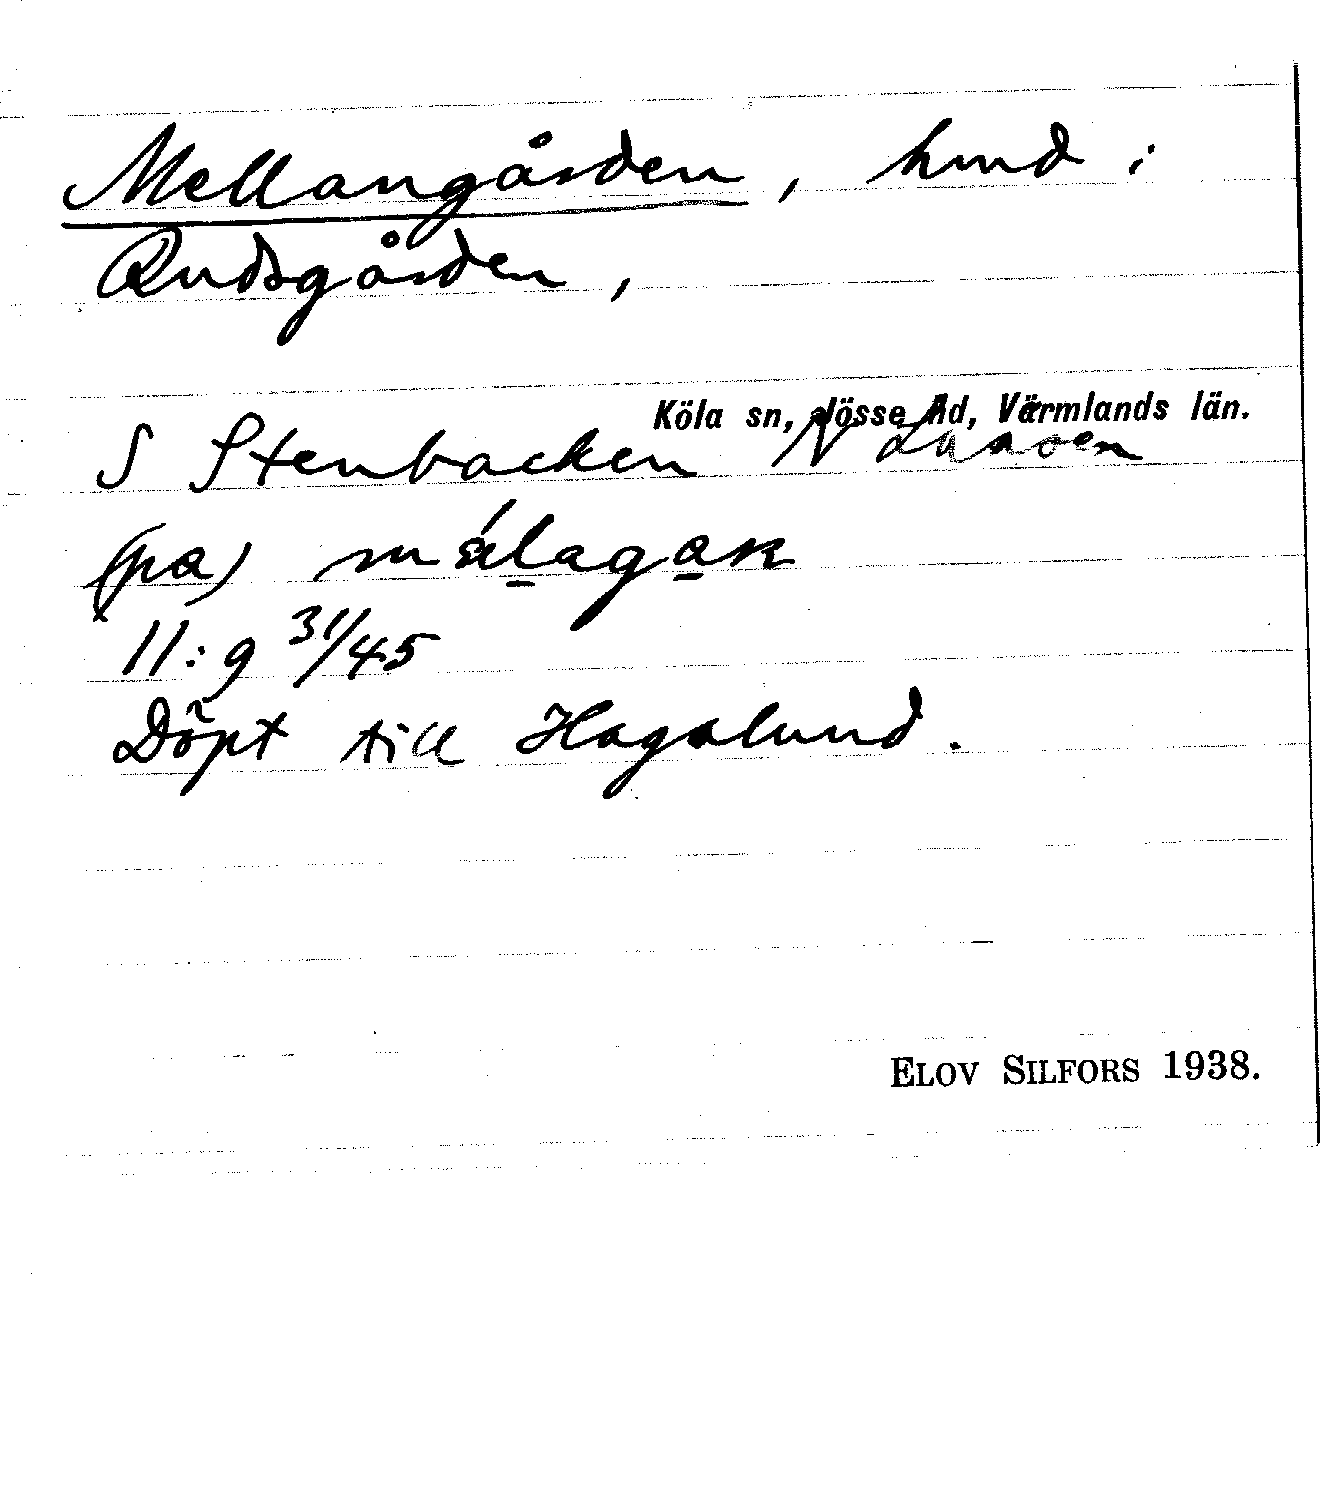 Mellangården, hmd i
Rudsgården,
Köla sn, Jösse hd, Värmlands län.
S Stenbacken N Laasen
(pa) målagaɴ
11:9 31/45
Döpt till Hagalund.
ELOV SILFORS 1938.